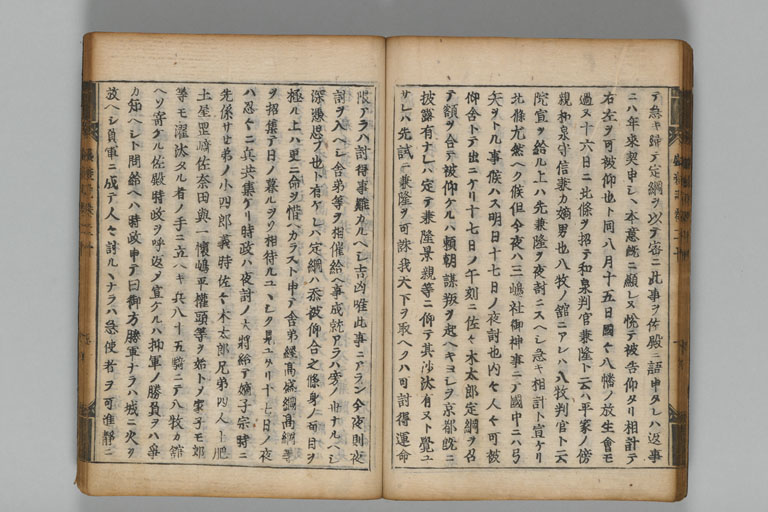 テ急キ歸テ定綱ヲ以テ密ニ此事ヲ佐殿ニ語申タレハ返事
ニハ年來契申シヽ本意既ニ顯レヌ悦テ被告仰タリ相計テ
右左ヲ可被仰也ト同八月十五日國々八幡ノ放生會モ
過ヌ十六日ニ北條ヲ招テ和泉判官兼隆ト云ハ平家ノ傍
親和泉守信兼カ嫡男也八牧ノ舘ニアレハ八牧判官ト云
院宣ヲ給ル上ハ先兼隆ヲ夜討ニスヘシ急キ相計ト宣ケリ
北條尤然ヘク候但今夜ハ三嶋社御神事ニテ國中ニハ弓
矢ヲトル事候ハス明日十七日ノ夜討也内々人々可被
仰含トテ出ニケリ十七日ノ午刻ニ佐々木太郎定綱ヲ召
テ額ヲ合テ被仰ケルハ頼朝謀叛ヲ起ヘキヨシヲ京都既ニ
披露有ナレハ定テ兼隆景親等ニ仰テ其沙汰有ヌト覺ユ
サレハ先試ニ兼隆ヲ可誅我天下ヲ取ヘクハ可討得運命
限アラハ討得事難カルヘシ吉凶唯此事ニアラン今夜則夜
討ヲ入ヘシ舍弟等ヲ相催給ヘ事成就アラハ旁ノ世ナルヘシ
深憑思フ也ト有ケレハ定綱ハ忝被仰合之條身ノ面目ヲ
極ル上ハ更ニ命ヲ惜ヘカラスト申テ舍弟經高盛綱高綱等
ヲ招集テ日ノ暮ルヲソ相待ル
ハ忍々ニ兵共集ケリ時政ハ夜討ノ大將給テ嫡子宗時ニ
先係サセ弟ノ小四郎義時佐々木太郎兄弟四人土肥
土屋岡崎佐奈田與一懷嶋平權頭等ヲ始トノ家子モ郎
等モ濯汰タル者ノ手ニ立ヘキ兵八十五騎ニテ八牧カ舘
ヘソ寄ケル佐殿時政ヲ呼返シ宣ケルハ抑軍ノ勝負ヲハ爭
カ知ヘシト問給ヘハ時政申テ曰御方勝軍ナラハ城ニ火ヲ
放ヘシ負軍ニ成テ人々討ルヽナラハ急使者ヲ可進靜ニ